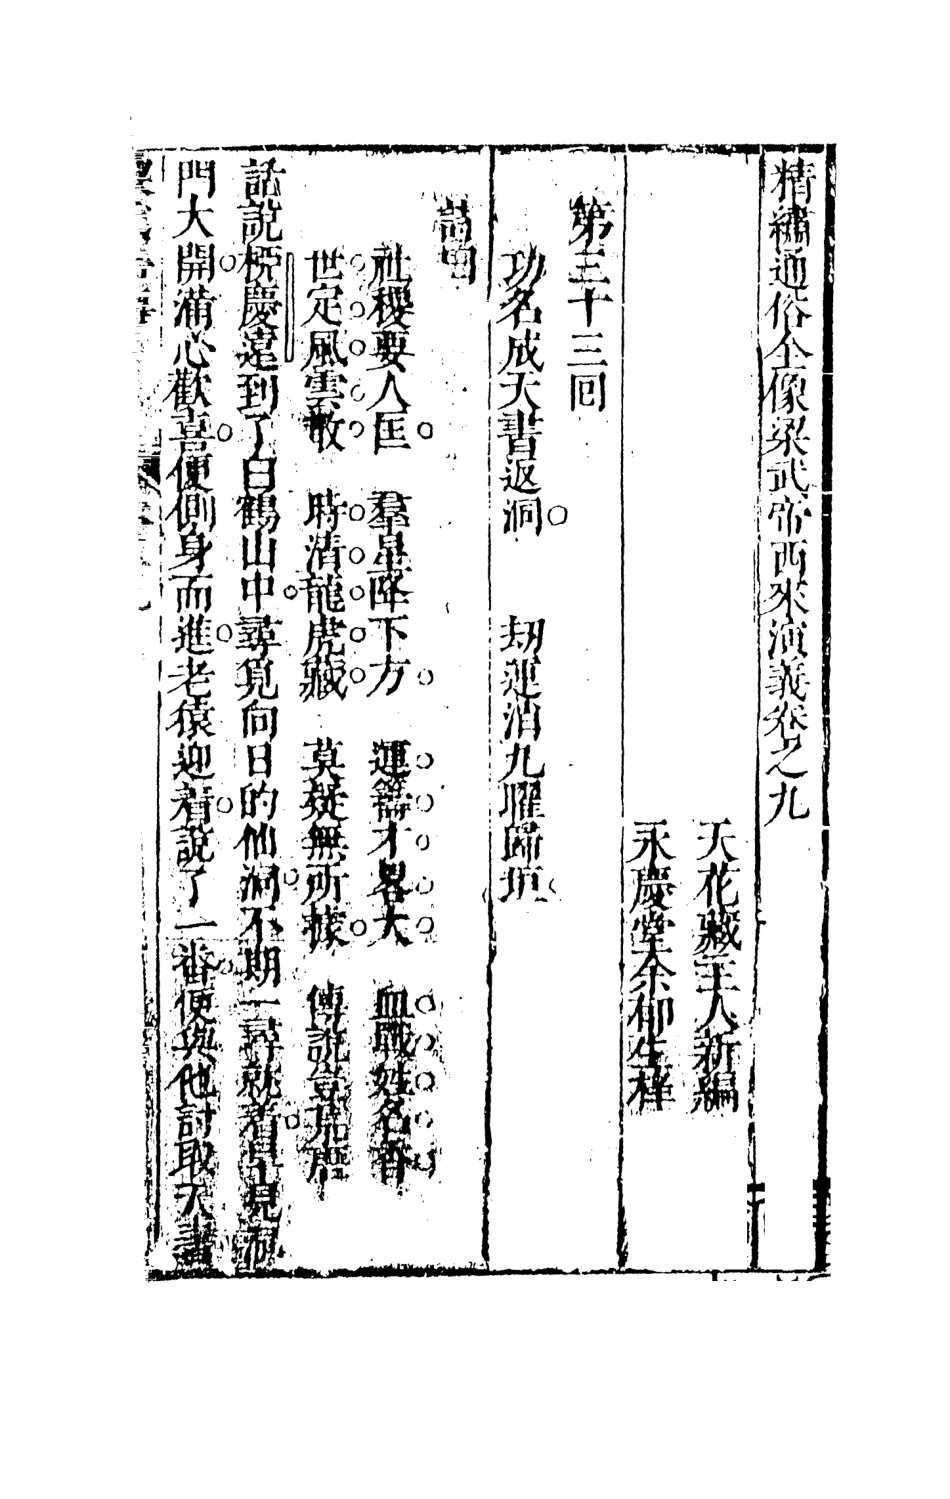 精繡通俗全像梁武帝西來演義卷之九
天花藏主人新編
永慶堂余郁生梓
第三十三回
功名成天書返洞　刼運消九曜歸垣
詩曰
社稷要人匡　羣星降下方　運籌才畧大　血戰姓名香
世定風雲散　時清龍虎藏　莫疑無所據　傳說豈荒唐
話說柳慶遠到了白鶴山中尋覓向日的仙洞不期一尋就着且見洞
門大開滿心歡喜便側身而進老猿迎着說了一番便與他討取天書